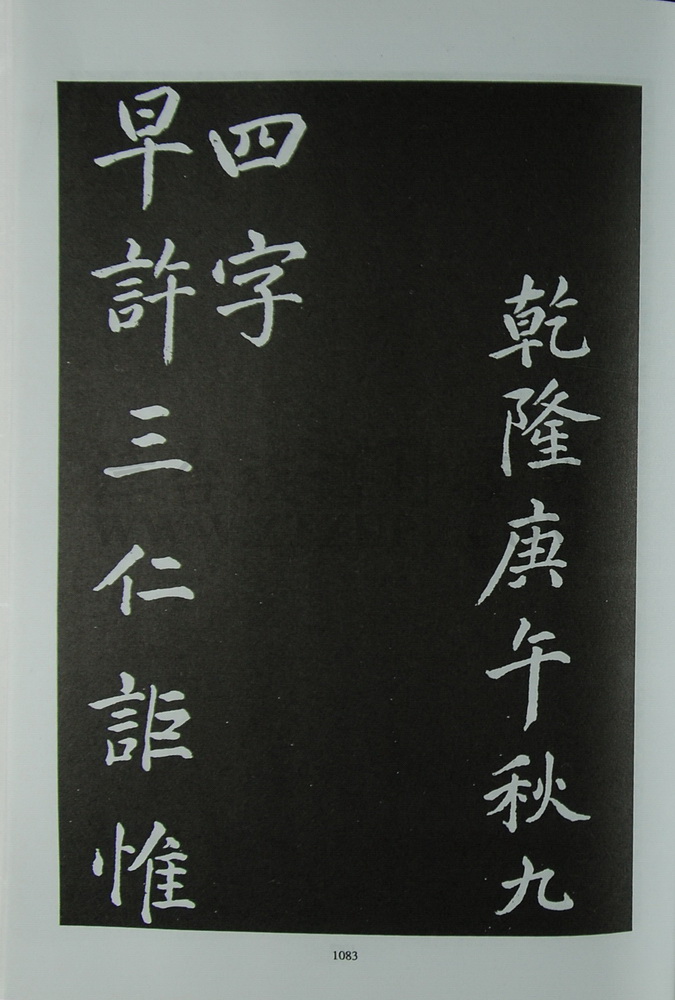 乾隆庚午秋九
四字
早許三仁詎惟
1083